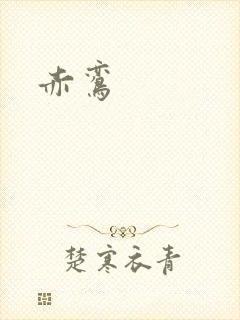 赤鸾
楚寒衣青